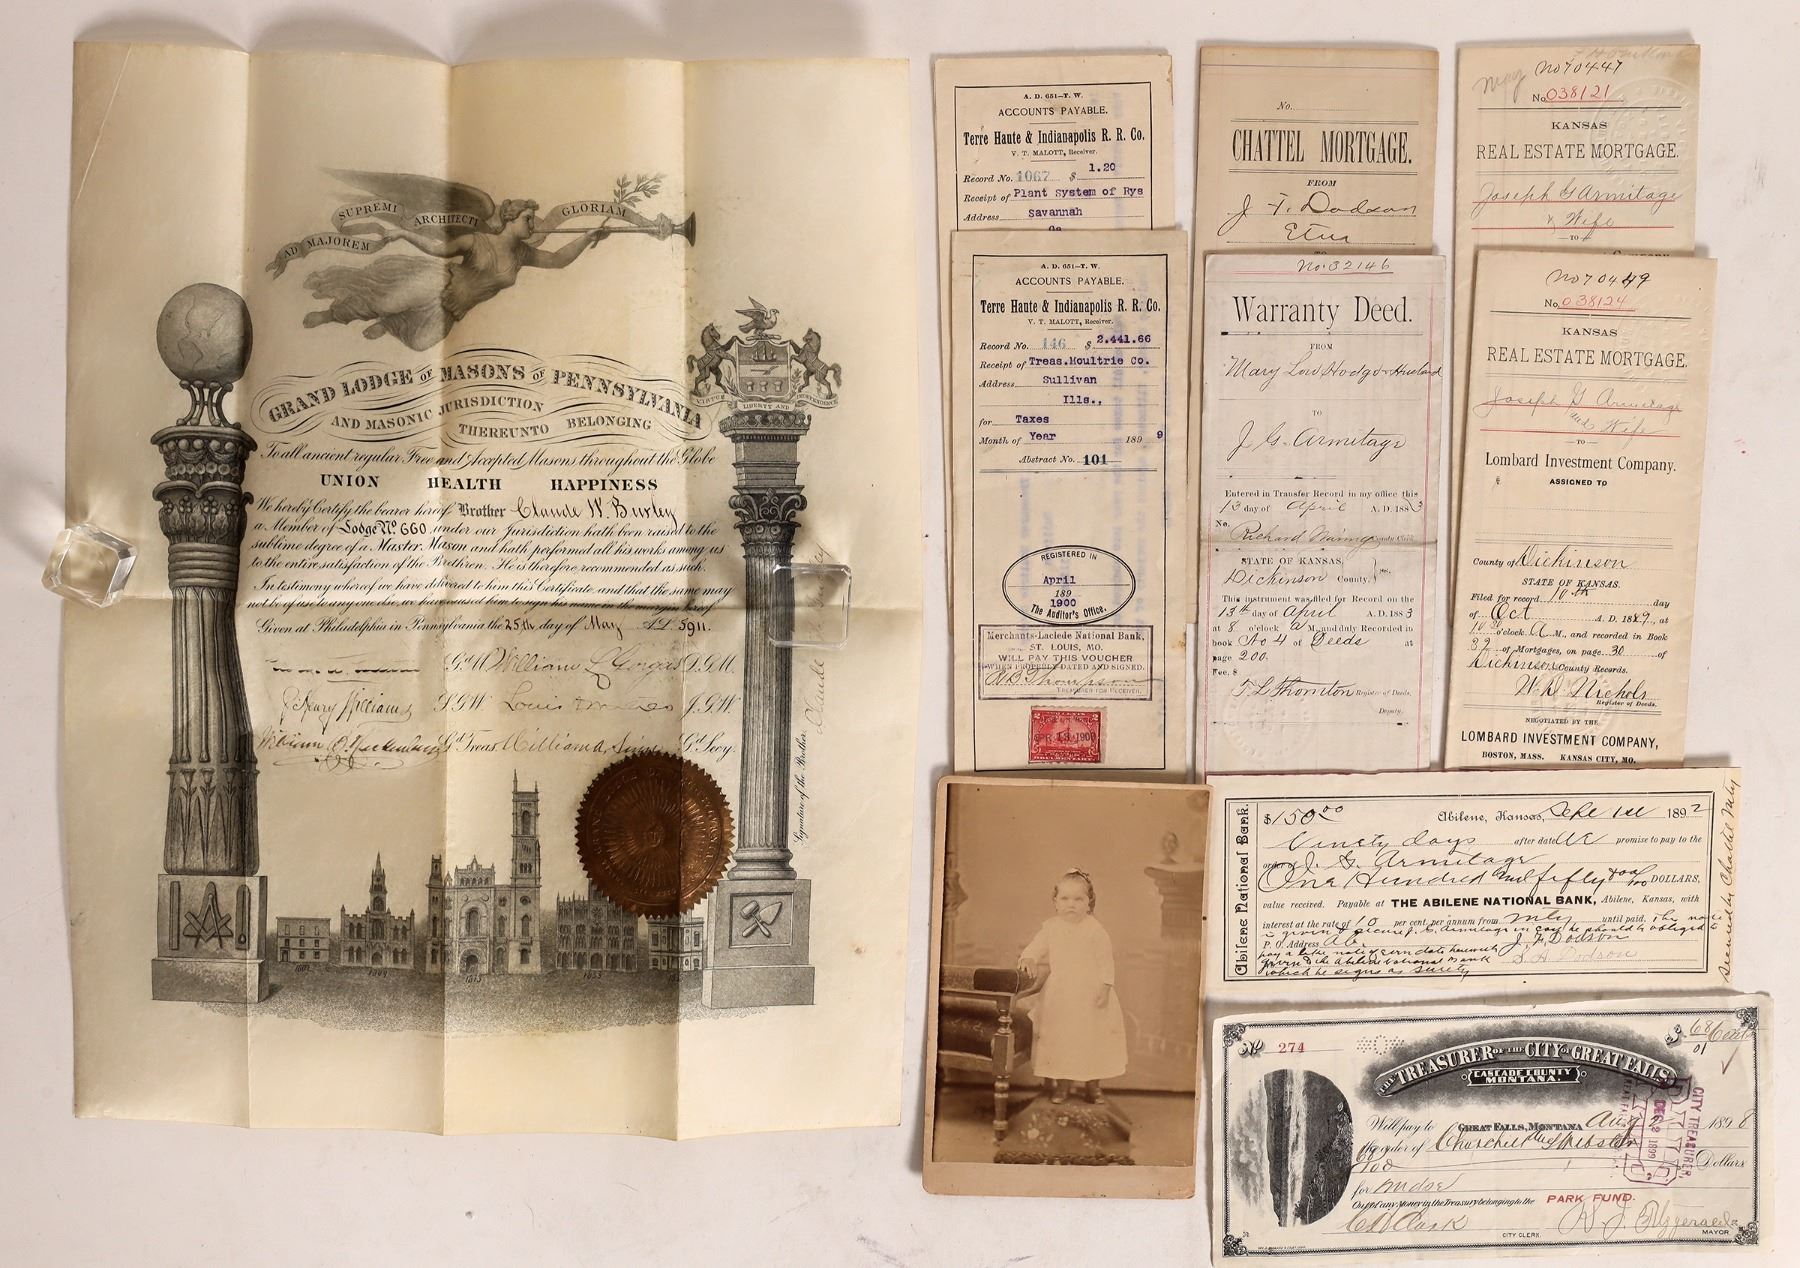 AD MAJOREM
SUPREMI
ARCHITECTI
GLORIAM
GRAND LODGE OF MASONS OF PENNSYLVANIA
AND MASONIC JURISDICTION
THEREUNTO BELONGING
VIRTUE LIBERTY AND INDEPENDENCE
To all ancient regular Free and Accepted Masons throughout the Globe
UNION HEALTH HAPPINESS
We hereby Certify the bearer hereof Brother Claude W. Burley
a Member of Lodge No. 660 under our Jurisdiction hath been raised to the
sublime degree of a Master Mason and hath performed all his works among us
to the entire satisfaction of the Brethren. He is therefore recommended as such.
In testimony whereof we have delivered to him this Certificate and that the same may
not be of use to any one else, we have caused him to sign his name in the margin hereof
Given at Philadelphia in Pennsylvania the 25th day of May A.D. 5911.
G.M. William L Gorgas D.G.M.
J. Henry Williams S.G.W. Louis J.G.W.
William B Gd Treas. William A. Sinn Gd Secy.
Signature of the Brother.
1802
1809
1873
1855
A. D. 651—T. W.
ACCOUNTS PAYABLE.
Terre Haute & Indianapolis R. R. Co.
V. T. MALOTT, Receiver.
Record No. 1067 $ 1.20
Receipt of Plant System of Rys
Address Savannah
Ga
A. D. 651—T. W.
ACCOUNTS PAYABLE.
Terre Haute & Indianapolis R. R. Co.
V. T. MALOTT, Receiver.
Record No. 146 $ 2.441.66
Receipt of Treas. Moultrie Co.
Address Sullivan
Ills.,
for Taxes
Month of Year 189 9
Abstract No. 101
REGISTERED IN
April
189
1900
The Auditor's Office.
Merchants-Laclede National Bank,
ST. LOUIS, MO.
WILL PAY THIS VOUCHER
WHEN PROPERLY DATED AND SIGNED.
W B Thompson
TREASURER FOR RECEIVER.
2 2
APR 13 1900
DOCUMENTARY
No.
CHATTEL MORTGAGE.
FROM
J. F. Dodson
Etna
No. 32146
Warranty Deed.
FROM
Mary Lou Hodge & Husband
TO
J. G. Armitage
Entered in Transfer Record in my office this
13 day of April A. D. 1883
No.
Richard Waring County Clerk
STATE OF KANSAS,
Dickinson County, ss.
This instrument was filed for Record on the
13th day of April A. D. 1883
at 8 o'clock A M., and duly Recorded in
book No 4 of Deeds at
page 200.
Fee, $
T. L. Thornton Register of Deeds.
Deputy.
May
No 70447
No. 038121
KANSAS
REAL ESTATE MORTGAGE.
Joseph G Armitage
& Wife
—TO—
No 70449
No. 038124
KANSAS
REAL ESTATE MORTGAGE.
Joseph G Armitage
and Wife
—TO—
Lombard Investment Company.
ASSIGNED TO
County of Dickinson
STATE OF KANSAS.
Filed for record 10th day
of Oct A. D. 1889, at
10 o'clock A M., and recorded in Book
32 of Mortgages, on page 30 of
Dickinson County Records.
W. D. Nichols
Register of Deeds.
NEGOTIATED BY THE
LOMBARD INVESTMENT COMPANY,
BOSTON, MASS. KANSAS CITY, MO.
Abilene National Bank.
$150.00 Abilene, Kansas, Sept 1st 1892
Ninety days after date we promise to pay to the
order of J. G. Armitage
One Hundred and fifty & no/100 DOLLARS,
value received. Payable at THE ABILENE NATIONAL BANK, Abilene, Kansas, with
interest at the rate of 10 per cent. per annum from mty until paid. This note
is given to secure J. G. Armitage in case he should be obliged to
P. O. Address
pay a note of even date herewith
given to the Abilene National Bank
which he signs as surety
J. F. Dodson
S. A. Dodson
Secured by Chattel Mtg
No 274
$ 68/01 Cents
THE TREASURER OF THE CITY OF GREAT FALLS
CASCADE COUNTY
MONTANA.
GREAT FALLS, MONTANA, Aug 1898
Will pay to
the order of Churchill & Webster
68/100 Dollars
for Mdse
Out of any Money in the Treasury belonging to the PARK FUND.
CITY CLERK.
MAYOR
CITY TREASURER,
PAID
DEC 2 1899
GREAT FALLS